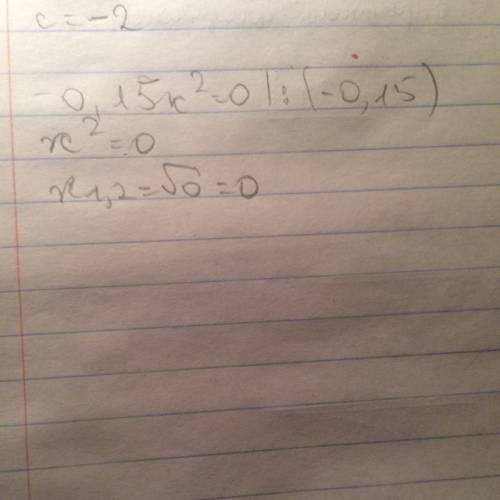 c = -2
-0,15x²=0 |:(-0,15)
x²=0
x1,2=√0=0